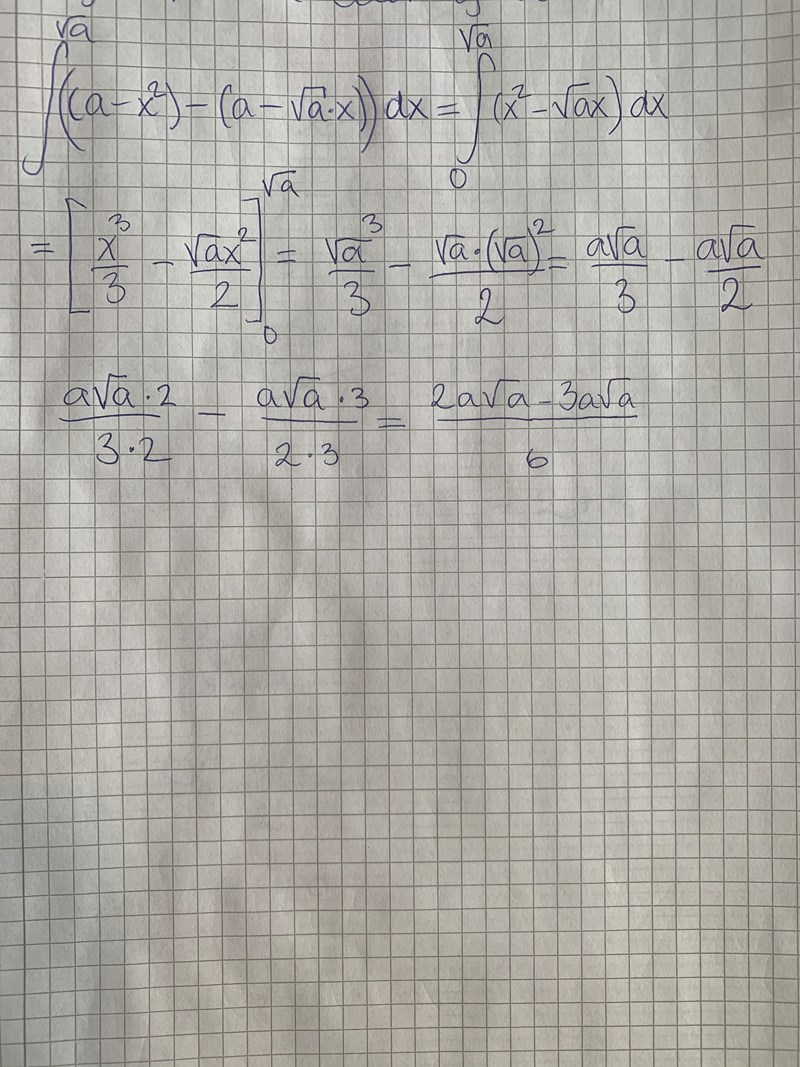 ∫^√a ((a-x²)-(a-√a·x)) dx = ∫₀^√a (x²-√ax) dx
= [x³/3 - √ax²/2]₀^√a = √a³/3 - √a·(√a)²/2 = a√a/3 - a√a/2
a√a·2/3·2 - a√a·3/2·3 = 2a√a-3a√a/6